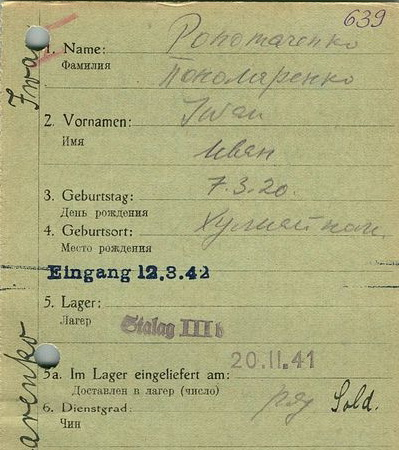 639
1. Name: Ponomarenko
Фамилия Пономаренко
2. Vornamen: Iwan
Имя Иван
3. Geburtstag: 7.3.20.
День рождения
4. Geburtsort:
Место рождения
Eingang 12.3.42
5. Lager:
Лагерь Stalag III b
20.11.41
5a. Im Lager eingeliefert am:
Доставлен в лагерь (число)
6. Dienstgrad: ряд Sold.
Чин
Iwan
arenko